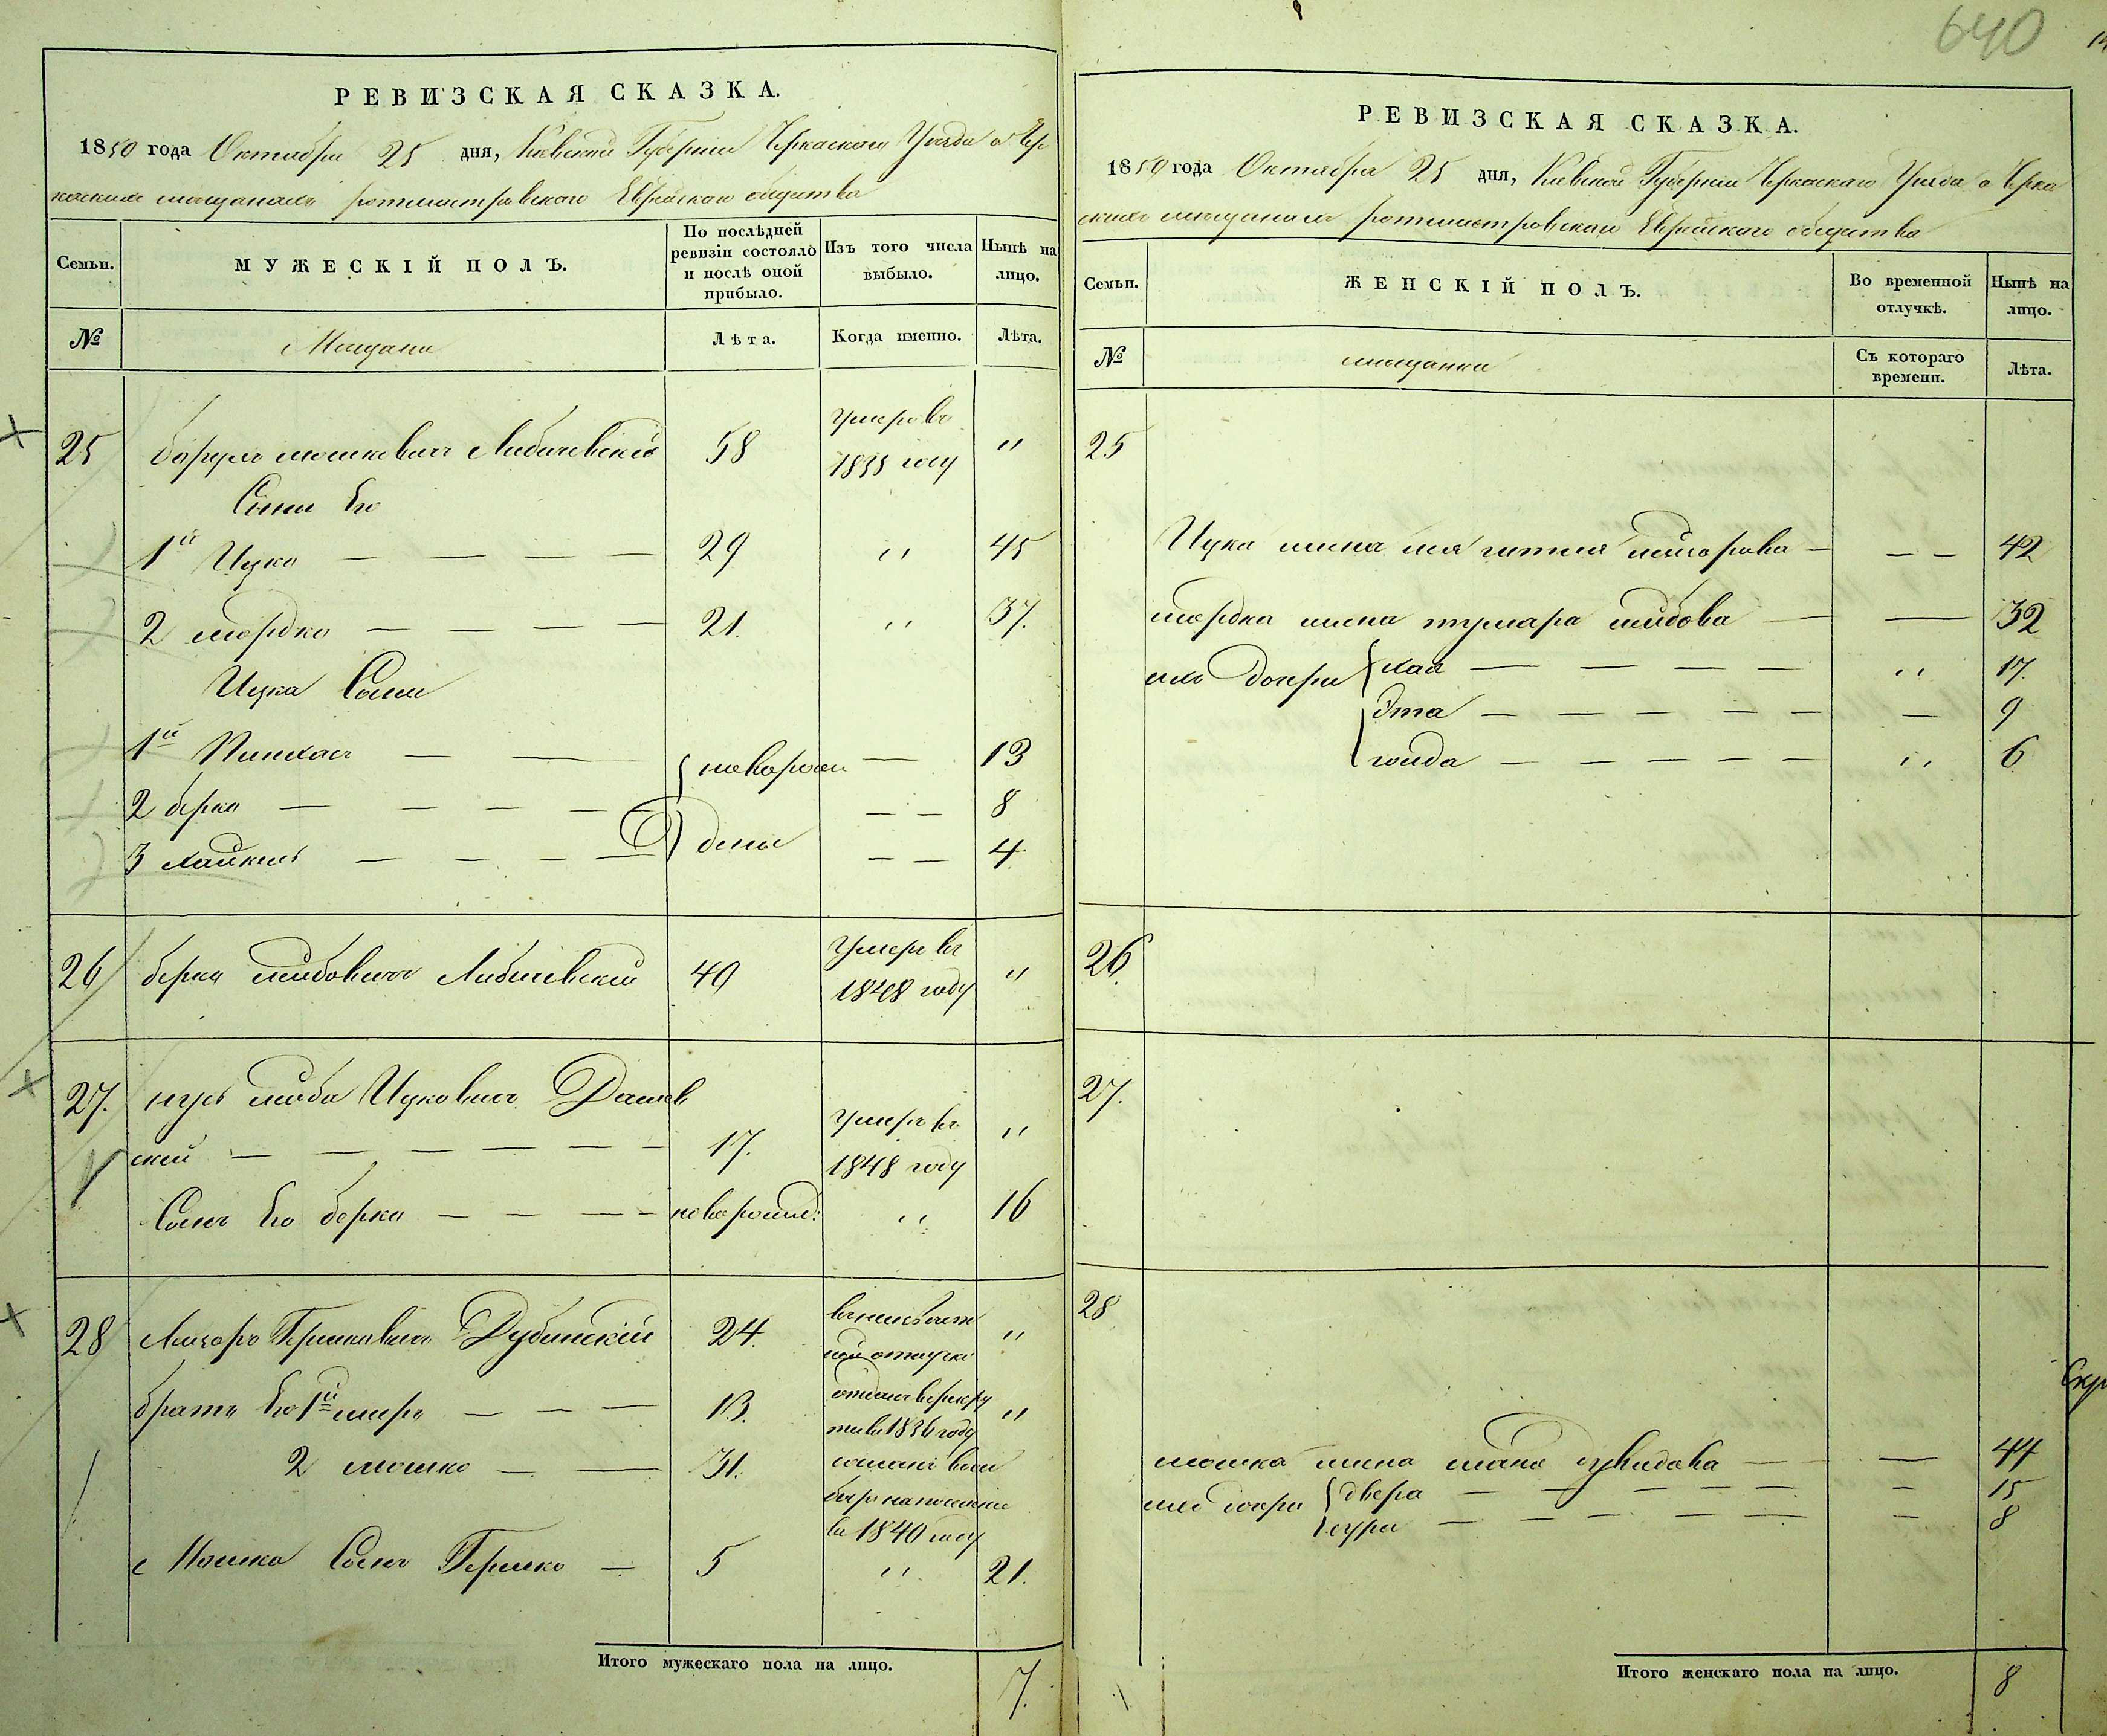 640
РЕВИЗСКАЯ СКАЗКА.
1850 года Октября 25 дня, Киевской Губернии Черкаского Уезда о Чер
каскихъ мещанахъ ротмистровского Еврейскаго общества
Семьи.
МУЖЕСКІЙ ПОЛЪ.
По послѣдней ревизіи состояло и послѣ оной прибыло.
Изъ того числа выбыло.
Нынѣ на лицо.
№
Мещани
Лѣта.
Когда именно.
Лѣта.
25 борухъ мошковичъ Любичевский 58 Умеръ въ 1835 году "
Сыни Его
1й Ицко — — — — 29 " 45
2 мордко — — — — 21. " 37.
Ицка Сыни
1й Пинхасъ — — новорож — 13
2 берко — — — — — — 8
3 хаимъ — — — — дены — — 4
26 берко лейбовичъ Любичевский 40 Умеръ въ 1848 году "
27. Ицковичъ Рашев
ский — — — — — — 17. Умеръ въ 1848 году "
Сынъ Его берко — — — — новорожд: " 16
28 Лейзоръ Гершковичъ Дубинский 24. "
братья Его 1й меер — — — 13. отданъ в рекру
ты въ 1836 году "
2 мошко — — 31. сосланъ в Си
бирь на поселение
въ 1840 году
Мошка Сынъ Гершко — 5 " 21.
Итого мужескаго пола на лицо. 7.
РЕВИЗСКАЯ СКАЗКА.
1850 года Октября 25 дня, Киевской Губернии Черкаского Уезда о Черка
скихъ мещанахъ ротмистровского Еврейскаго общества
Семьи.
ЖЕНСКІЙ ПОЛЪ.
Во временной отлучкѣ.
Нынѣ на лицо.
№
мещанки
Съ котораго времени.
Лѣта.
25
Ицка жена — — — 42
мордка жена лейбова — — 32
ихъ дочери хая — — — — " 17.
Эта — — — — — — — 9
голда — — — — — " 6
26.
27.
28
мошка жена дувидова — — — 44
ихъ дочери двера — — — — — — 15
сура — — — — — — — 8
Итого женскаго пола на лицо. 8